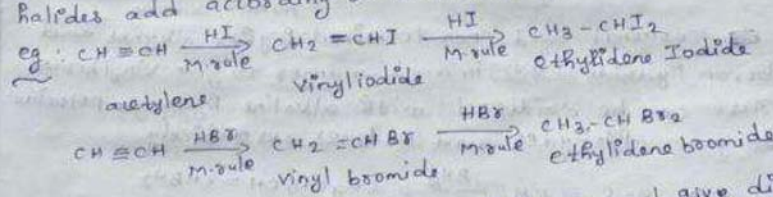 halides add according
eg : CH ≡ CH —HI/M.rule→ CH2 = CHI —HI/M.rule→ CH3 - CHI2
acetylene vinyliodide ethylidene Iodide
CH ≡ CH —HBr/M.rule→ CH2 = CHBr —HBr/M.rule→ CH3 - CHBr2
vinyl bromide ethylidene bromide
give di